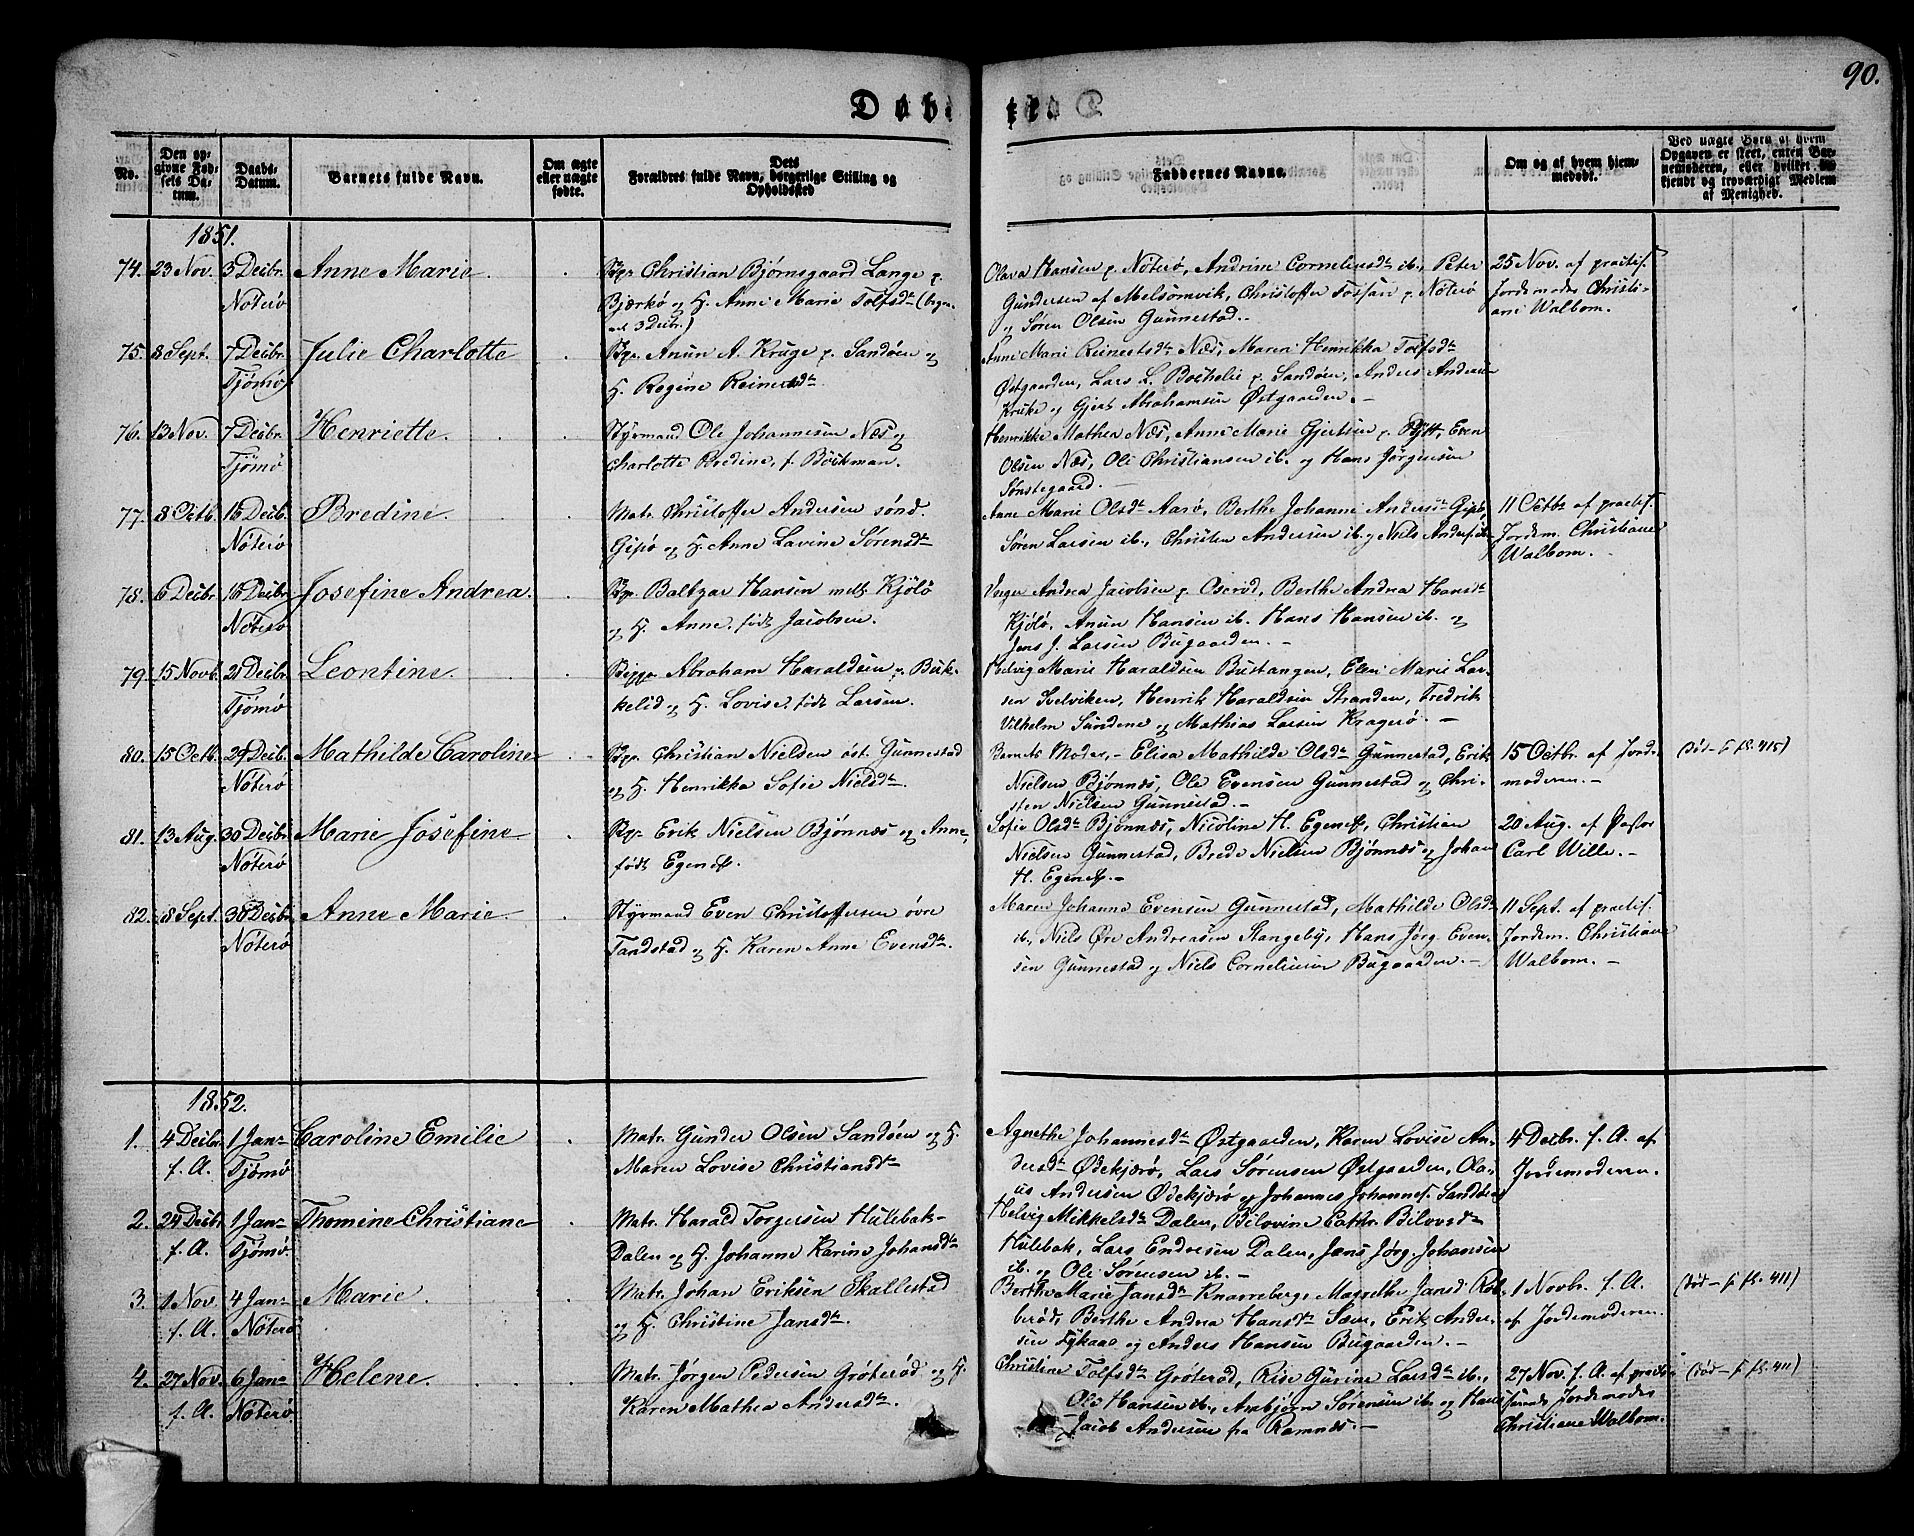 90.
Døbte
No.
Den opgivne Fødsels Datum.
Daabs-Datum.
Barnets fulde Navn.
Om ægte eller uægte fødte.
Dets Forældres fulde Navn, borgerlige Stilling og Opholdssted
Faddernes Navne.
Om og af hvem hjemmedøbt.
Ved uægte Børn af hvem Opgaven er skeet, enten Barnemoderen, eller hvilket bekjendt og troværdigt Medlem af Menighed.
1851.
74. 23 Nov. 3 Decbr. Nøterø Anne Marie.
Christian Bjørnsgaard Lange p.
Bjærkø og H. Anne Marie Tolfsdtr
3 Decbr.)
Olava Hansen p. Nøterø, Andrine Corneliusdtr ib., Peter
Gundersen af Melsomvik, Christoffer Tossan p. Nøterø
og Søren Olsen Gunnestad.-
25 Nov. af practis.
Jordemoder Christi-
ane Walbom.
75. 8 Sept. 7 Decbr. Tjømø Julie Charlotte
Anun A. Kruge p. Sandøen og
H. Regine Reinertsdtr
Anne Marie Reinertsdtr Næs, Maren Henrikka Tolfsdtr
Østgaarden, Lars L. Bochelie p. Sandøen, Anders Andersen
Kruke og Gjert Abrahamsen Østgaarden.-
76. 13 Nov. 7 Decbr. Tjømø Henriette.
Styrmand Ole Johannesen Næs og
Charlotte Bredine, f. Bøckman.
Henrikke Mathea Næs, Anne Marie Gjertsen p. Bytt, Even
Olsen Næs, Ole Christiansen ib. og Hans Jørgensen
Sønstegaard.
77. 8 Octb. 16 Decbr. Nøterø Bredine.
Matr. Christoffer Andersen sønd.
Gipø og H. Anne Lavine Sørensdtr
Anne Marie Olsdtr Aarø, Berthe Johanne Andersdtr Gipø,
Søren Larsen ib., Christen Andersen ib. og Niels Anders. ib.
11 Octbr af practis.
Jordem. Christiane
Walbom.
78. 6 Decbr 16 Decbr. Nøterø Josefine Andrea.
Baltzar Hansen mell. Kjölö
og H. Anne, født Jacobsen.
Andrea Jacobsen p. Oserød, Berthe Andrea Hansdtr
Kjölö, Anun Hansen ib. Hans Hansen ib. og
Jens J. Larsen Bugaarden.-
79. 15 Novb. 21 Decbr. Tjømø Leontine.
Abraham Haraldsen p. Buk-
kelid og H. Lovise, født Larsen.
Helvig Marie Haraldsen Bustangen, Elen Marie Lar-
sen Kvelviken, Henrik Haraldsen Stranden, Fredrik
Vilhelm Sundene og Mathias Larsen Kragerø.-
80. 15 Octb. 29 Decbr. Nøterø Mathilde Caroline
Christian Nielsen øst. Gunnestad
og H. Henrikka Sofie Nielsdtr.
Barnets Moder,- Elisa Mathilde Olsdtr Gunnestad, Erik
Nielsen Bjønnæs, Ole Evensen Gunnestad og Chri-
sten Nielsen Gunnestad.-
15 Octbr. af Jord-
moderen.-
(død - fl. 415)
81. 13 Aug. 30 Decbr. Nøterø Marie Josefine
Erik Nielsen Bjønnæs og Anne,
født Egenæs.
Sofie Olsdtr Bjønnæs, Nicoline H. Egenæs, Christian
Nielsen Gunnestad, Brede Nielsen Bjønnæs og Johan
H. Egenæs.-
20 Aug. af Pastor
Carl Wille.-
82. 8 Sept. 30 Decbr. Nøterø Anne Marie.
Styrmand Even Christoffersen øvre
Tandstad og H. Karen Anne Evensdtr.
Maren Johanne Evensen Gunnestad, Mathilde Olsdtr
ib., Niels Øre Andreasen Stangeby, Hans Jørg. Even-
sen Gunnestad og Niels Corneliusen Bugaarden.-
11 Sept. af practis.
Jordem. Christiane
Walbom.-
1852.
1. 4 Decbr f. A. 1 Jan- Tjømø Caroline Emilie
Matr. Gunder Olsen Sandøen og H.
Maren Lovise Christiansdtr
Agnethe Johannesdtr Østgaarden, Karen Lovise An-
dersdtr Ødekjærø, Lars Sørensen Østgaarden, Ola-
us Andersen Ødekjærø og Johannes Johannes. Sandøen
4 Decbr. f. A. af
Jordemoderen.
2. 24 Decbr f. A. 1 Jan- Tjømø Thomine Christiane
Matr. Harald Torgersen Hulebak-
Dalen og H. Johanne Karine Johansdtr
Helvig Mikkelsdtr Dalen, Bilovine Cathr. Bilovsdtr
Hulebak, Lars Endresen Dalen, Jens Jørg. Johansen
ib. og Ole Sørensen ib.-
3. 1 Nov f. A. 4 Jan- Nøterø Marie.
Matr. Johan Eriksen Skallestad
og H. Christine Jansdtr.
Berthe Marie Jansdtr Knarreberg, Margrethe Jansd. Rob-
berød, Berthe Andrea Hansdtr Sæm, Erik Ander-
sen Tykaae og Anders Hansen Bugaarden.-
1 Novbr. f. A.
af Jordemoderen.
(død - fl. 411)
4. 27 Nov. f. A. 6 Jan- Nøterø Helene.
Matr. Jørgen Pedersen Grøterød og H.
Karen Mathea Andersdtr.
Christine Tolfsdtr Grøterød, Risе Gurine Larsdtr ib.,
Ole Hansen ib., Asbjørn Sørensen ib. og Hans
Jacob Andersen fra Ramnæs.-
27 Nov. f. A. af practi-
serende Jordemoder
Christiane Walbom.
(død - fl. 411)